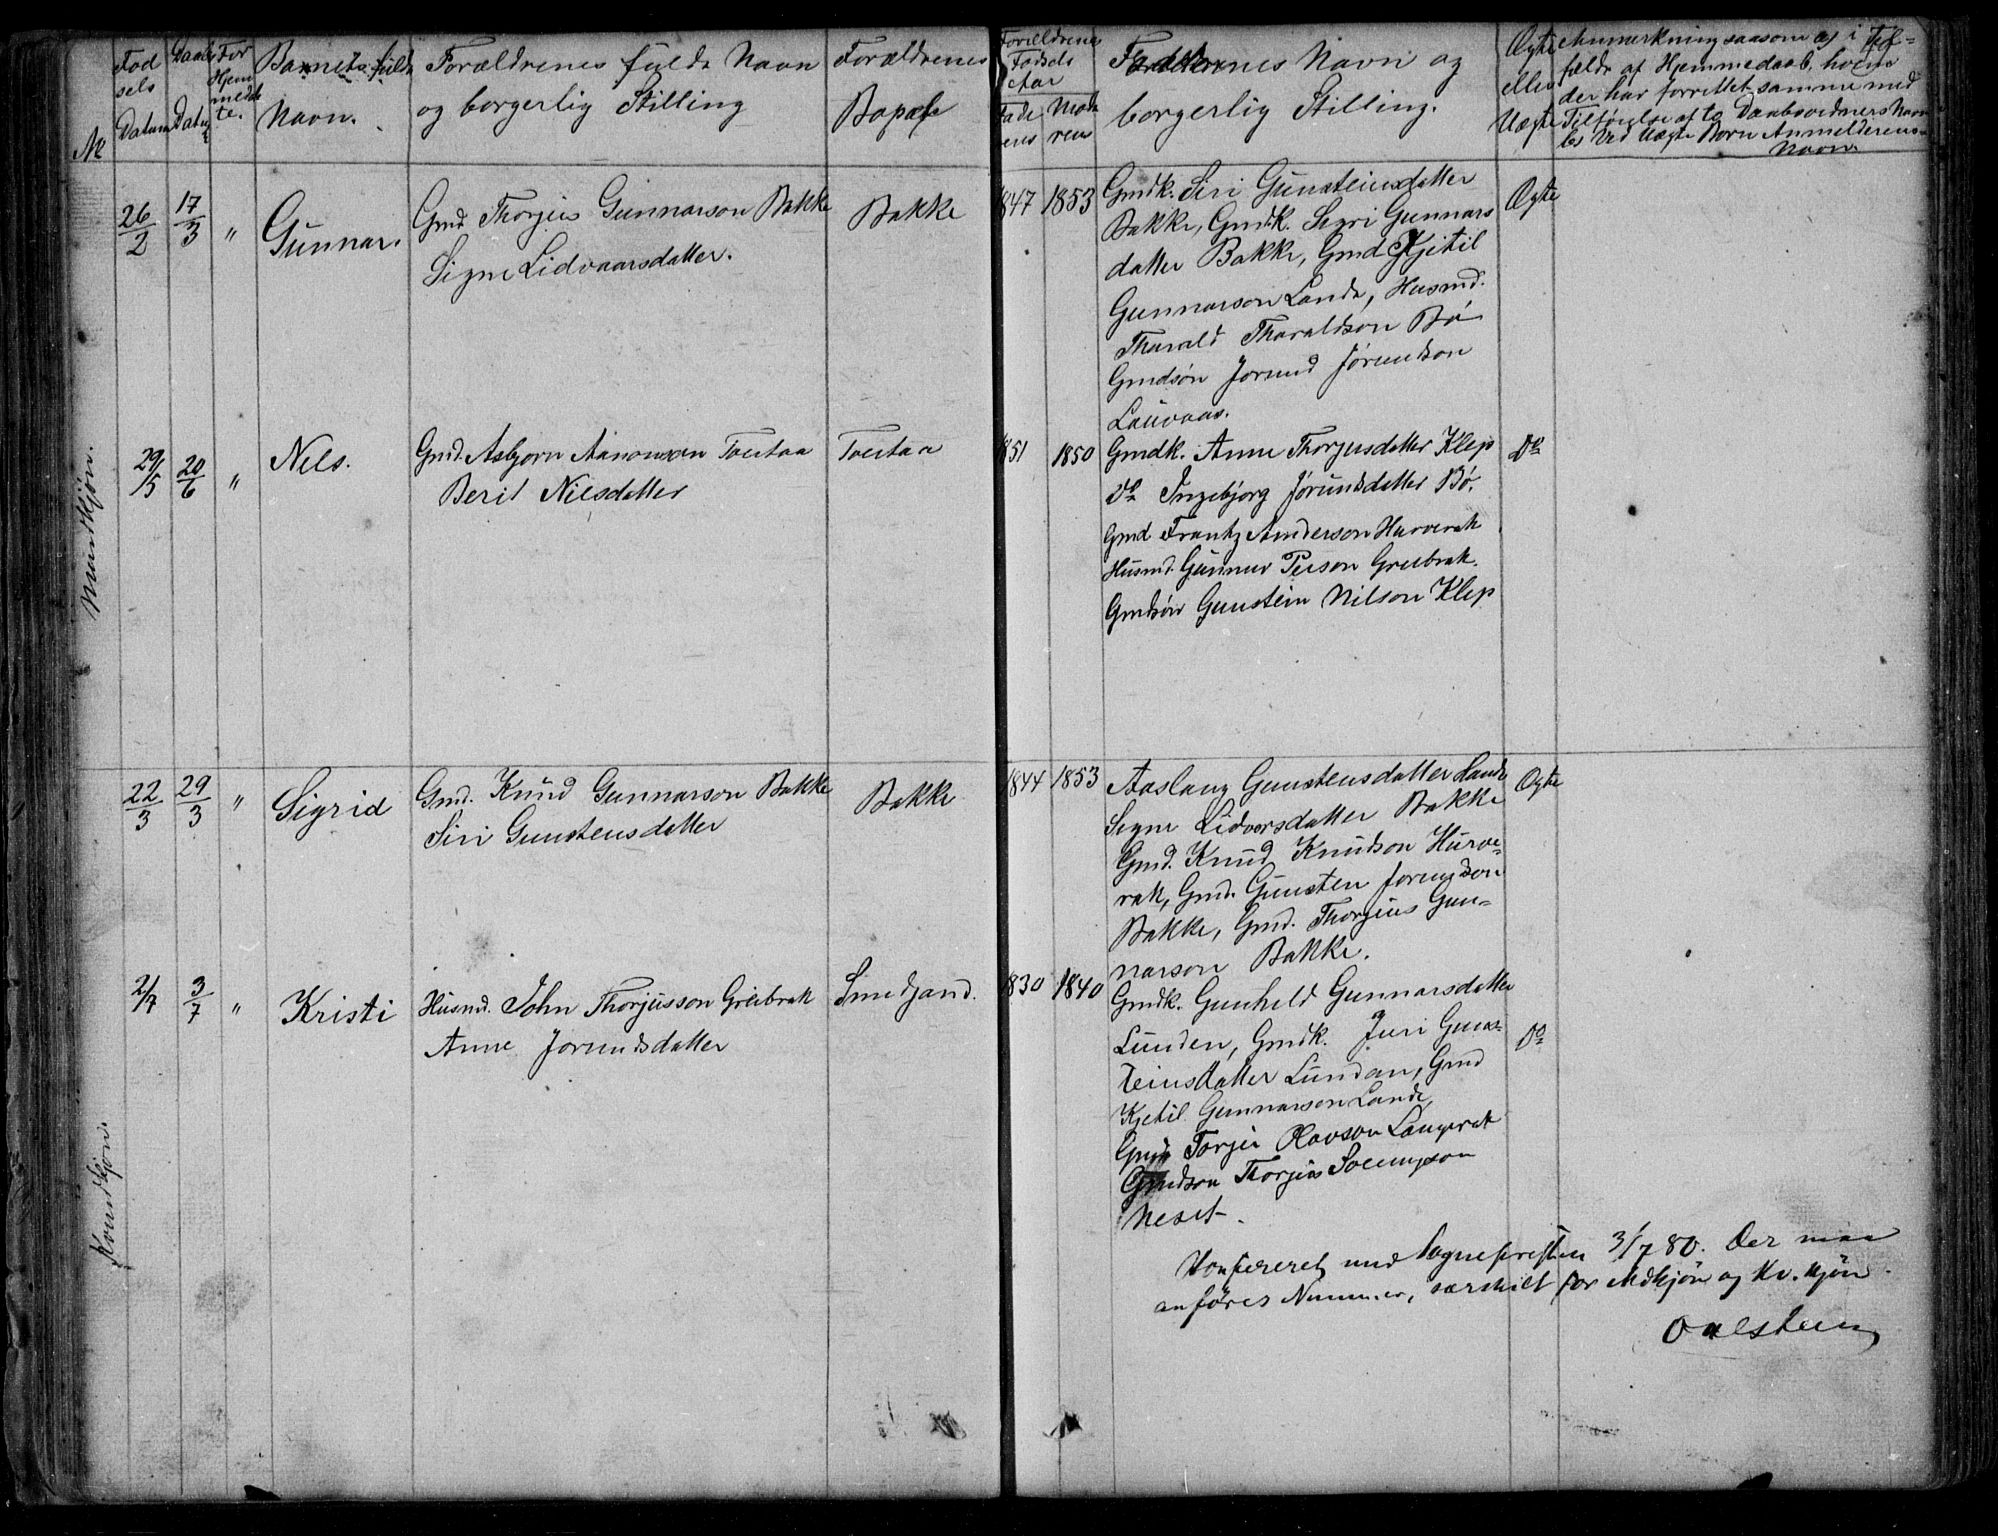 No
Fød
sels
Datum
Daabs
Datum
For
Hjem
medøb
te.
Barnets fulde
Navn.
Forældrenes fulde Navn
og borgerlig Stilling
Forældrenes
Bopæl
Forældrenes
Fødsels
Aar
Fade
rens
Mod
rens
Faddernes Navn og
borgerlig Stilling.
Ægte
eller
Uægte
Anmerkning saasom og i Til-
fælde af Hjemmedaab, hvem
der har forrettet samme med
Tilføielse af to Daabsvidners Navn
Ved Uægte Børn Anmelderens
Navn.
Mandkjøn.
26/2 17/3 " Gunnar.
Gmd Thorjus Gunnarson Bakke
Signe Lidvaarsdatter.
Bakke
1847 1853
Gmdk. Siri Gunsteinsdatter
Bakke, Gmdk. Sigri Gunnars
datter Bakke, Gmd Kjetil
Gunnarson Lande, Husmd.
Tharald Tharaldson Bø
Gmdsøn Jorund Jørundson
Lauvaas.
Ægte
29/5 20/6 " Nels.
Gmd. Asbjørn Aanonson Toutaa
Berit Nilsdatter
Toutaa
1851 1850
Gmdk. Anne Thorjusdatter Klep
Do Ingebjorg Jørundsdatter Bø.
Gmd Frantz Anderson Harverak
Husmd. Gunnar Person Greibrok.
Gmdsøn Gunstein Nilson Klep
Do
Kvindkjøn.
22/3 29/3 " Sigrid
Gmd. Knud Gunnarson Bakke
Siri Gunstensdatter
Bakke
1844 1853
Aaslaug Gunstensdatter Lande
Signe Lidvorsdatter Bakke
Gmd. Knud Knudson Hurve-
rak, Gmd. Gunsten Jorundson
Bakke, Gmd. Thorjus Gun-
narson Bakke.
Ægte
2/7 3/7 " Kristi
Husmd. John Thorjusson Greibrok
Anne Jorundsdatter
Smedjand.
1830 1840
Gmdk. Gunheld Gunnarsdatter
Lunden, Gmdk. Juri Guns-
teinsdatter Lundan, Gmd
Kjetil Gunnarson Lande,
Gmd Torjei Olavson Langerak
Gmdson Thorjus Solemyson
Neset.
Do
Konfereret med Sognepresten 3/7 80. Der maa
anføres Nummer, særskilt for Mdkjøn og Kv. kjøn.